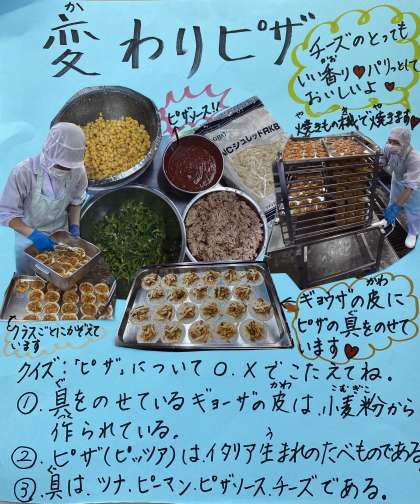 変わりピザ
か
チーズのとっても
いい香り♥パリっとして
かお
おいしいよ♥
ピザソース!!
NCシュレッドRKB
焼きもの機で焼きます♥
や き や
ギョウザの皮に
かわ
ピザの具をのせて
ぐ
います♥
クラスごとにかぞえて
います
クイズ:「ピザ」について○.×でこたえてね。
①.具をのせているギョーザの皮は、小麦粉から
ぐ かわ こむぎこ
作られている。
つく
②.ピザ(ピッツア)は、イタリア生まれのたべものである
う
③.具は、ツナ、ピーマン、ピザソース、チーズである。
ぐ